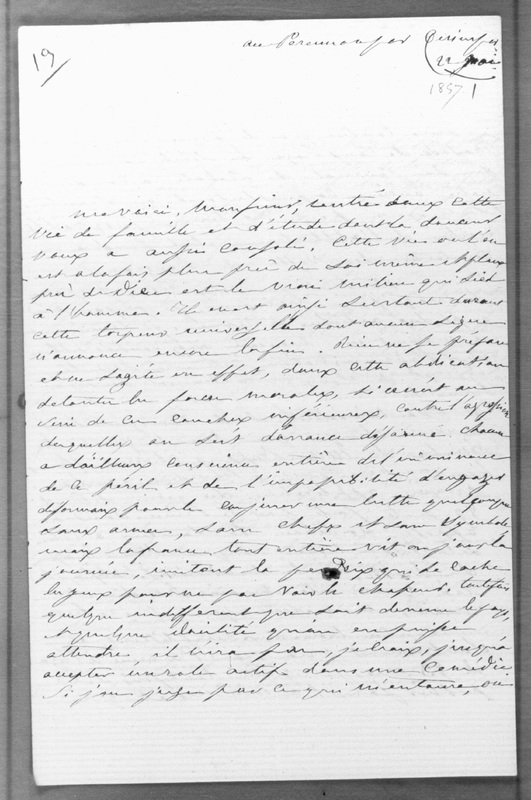 19
au Peremont par
22 mai
1857
me voici, Monsieur, rentré dans cette
vie de famille et d'étude dont la douceur
vous a aussi consolé. Cette vie où l'on
est à la fois plus près de soi même et plus
près de Dieu est le vrai milieu qui sied
à l'homme. Il en est ainsi surtout durant
cette torpeur universelle dont aucun signe
n'annonce encore la fin. Rien ne se prépare
et ne s'agite en effet, dans cette abdication
de toutes les forces morales, si ce n'est au
sein de ces couches inférieures, contre l'agression
desquelles on sert d'avance désarmé. Chacun
a d'ailleurs conscience entière de l'imminence
de ce péril et de l'impossibilité d'engager
désormais pour le conjurer une lutte quelconque
sans armes, sans chefs et sans symbole
mais la france tout entière vit au jour la
journée, imitant la perdrix qui se cache
les yeux pour ne pas voir le chasseur. toutefois
quelque indifférent que soit devenu le pays,
et quelque docilité qu'on en puisse
attendre il n'ira pas, je crois, jusqu'à
accepter un rôle actif dans une comédie
Si j'en juge par ce qui m'entoure, où